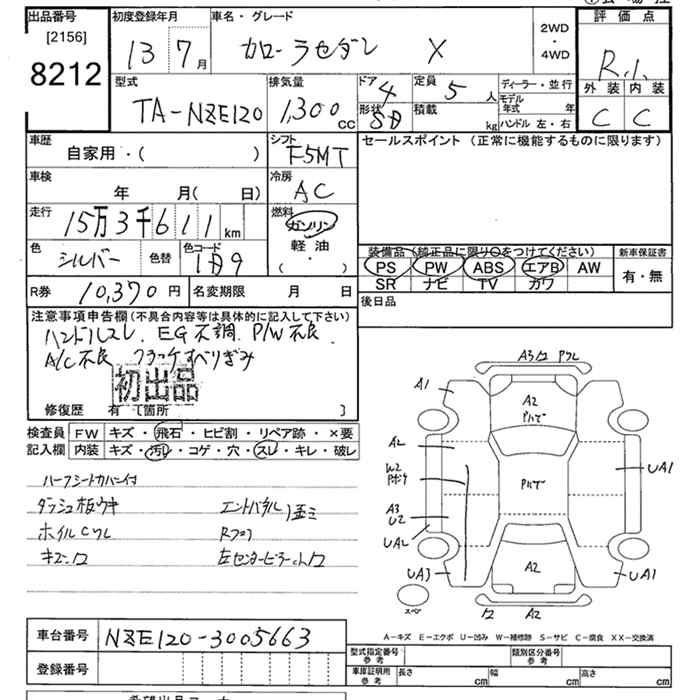 出品番号
[2156]
8212
初度登録年月
13 7月
車名・グレード
カローラセダン X
2WD
・
4WD
評価点
R.1.
外装 内装
C C
型式
TA-NZE120
排気量
1,300 cc
ドア 4
形状 SD
定員 5 人
積載 kg
ディーラー・並行
モデル年式 年
ハンドル 左・右
車歴
自家用・( )
シフト
F5MT
セールスポイント (正常に機能するものに限ります)
車検
年 月( 日)
冷房
AC
走行
15万3千611km
燃料
ガソリン
軽油
( ・ )
色
シルバー
色替
色コード
1D9
装備品(純正品に限り○をつけてください)
PS PW ABS エアB AW
SR ナビ TV カワ
新車保証書
有・無
R券 10,370円
名変期限 月 日
後日品
注意事項申告欄(不具合内容等は具体的に記入して下さい)
ハンドルスレ. EG不調. P/W不良.
A/C不良 クラッチすべりぎみ
初出品
修復歴 有 [箇所 ]
検査員
記入欄
FW キズ・飛石・ヒビ割・リペア跡・×要
内装 キズ・汚レ・コゲ・穴・スレ・キレ・破レ
ハーフシートカバー付
ダッシュ板ウキ エントパネル
ホイルCワレ Rフロ
キズ・凹 左センターピラー凹
A3凹 Pワレ
A1
A2
A2
W2
A3
U2
UA2
UA3
A2
UA1
UA1
スペ
凹 A2
A-キズ E-エクボ U-凹み W-補修跡 S-サビ C-腐食 XX-交換済
車台番号 NZE120-3005663
登録番号
型式指定番号
参考
類別区分番号
参考
車庫証明用
参考
長さ cm
幅 cm
高さ cm